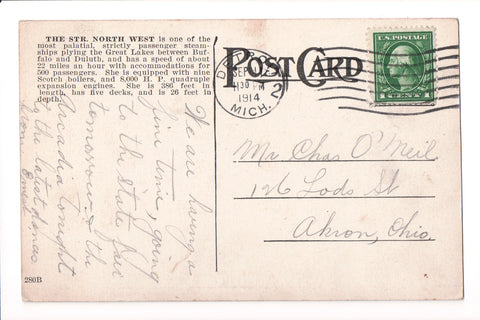 THE STR. NORTH WEST is one of the
most palatial, strictly passenger steam-
ships plying the Great Lakes between Buf-
falo and Duluth, and has a speed of about
22 miles an hour with accommodations for
500 passengers. She is equipped with nine
Scotch boilers, and 8,000 H. P. quadruple
expansion engines. She is 386 feet in
length, has five decks, and is 26 feet in
depth.
We are having a
fine time, going
to the State fair
tomorrow & the
Arcadia tonight
to the latest dances
from
Ernest
280B
POST CARD
DETROIT
SEP
30 PM
1914
MICH.
2
U.S. POSTAGE
1 CENT 1
Mr Chas O'Neil
126 Lods St
Akron, Ohio.